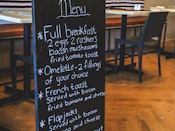 Menu
*Full breakfast
2 eggs 2 rashers
bacon mushrooms
fried tomato toast
*Omelette 2 fillings
of your choice
*French toast
Served with bacon
fried banana and cheese
*Flapjacks
Served with bacon
and cheese